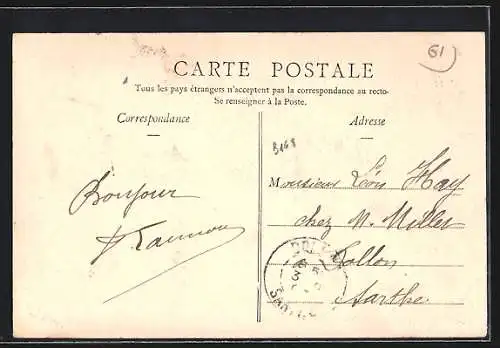 61
CARTE POSTALE
Tous les pays étrangers n'acceptent pas la correspondance au recto-
Se renseigner à la Poste.
Correspondance
Adresse
Monsieur Léon Hay
Bonjour
chez M. Miller
Tollon
Sarthe